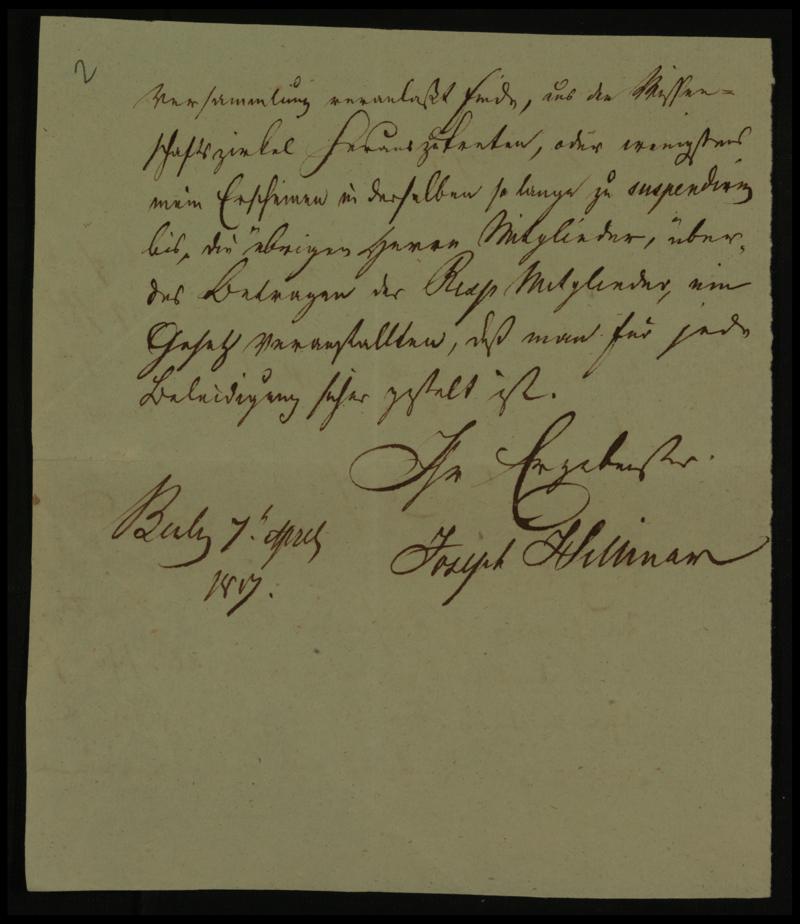 2
Versammlung veranlaßt finde, aus den Wissen=
schaftszirkel herauszutreten, oder wenigstens
mein Erscheinen in derselben so lange zu suspendiren
bis, die übrigen Herrn Mitglieder, über,
das Betragen der Resp Mitglieder, ein
Gesetz veranstallten, daß man für jede
Beleidigung sicher gestelt ist.
Ihr Ergebenster.
Berlin 7t April
Joseph Hillmar
1817.